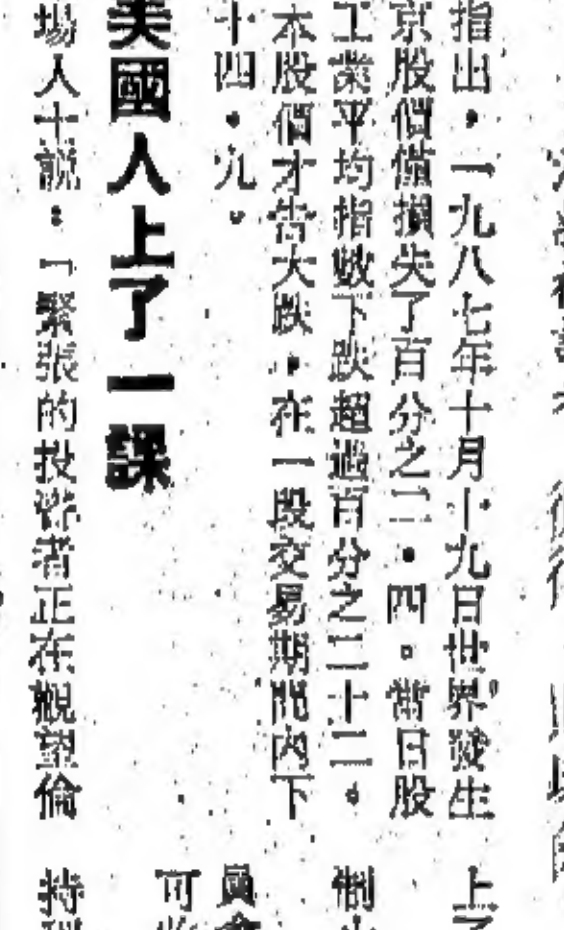 指出，一九八七年十月十九日世界發生
京股價僅損失了百分之二・四。當日股
工業平均指數下跌超過百分之二十二。
本股價才告大跌，在一段交易期間內下
十四・九。
美國人上了一課
場人士說：「緊張的投資者正在觀望倫
上了
惻
員會
可
持